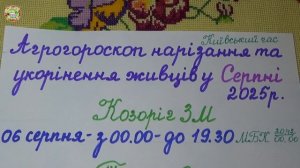 Київський час
Агрогороскоп нарізання та
укорінення живців у Серпні
2025р.
Козоріг ЗМ
06 серпня - з 00.00 - до 19.30 МБК